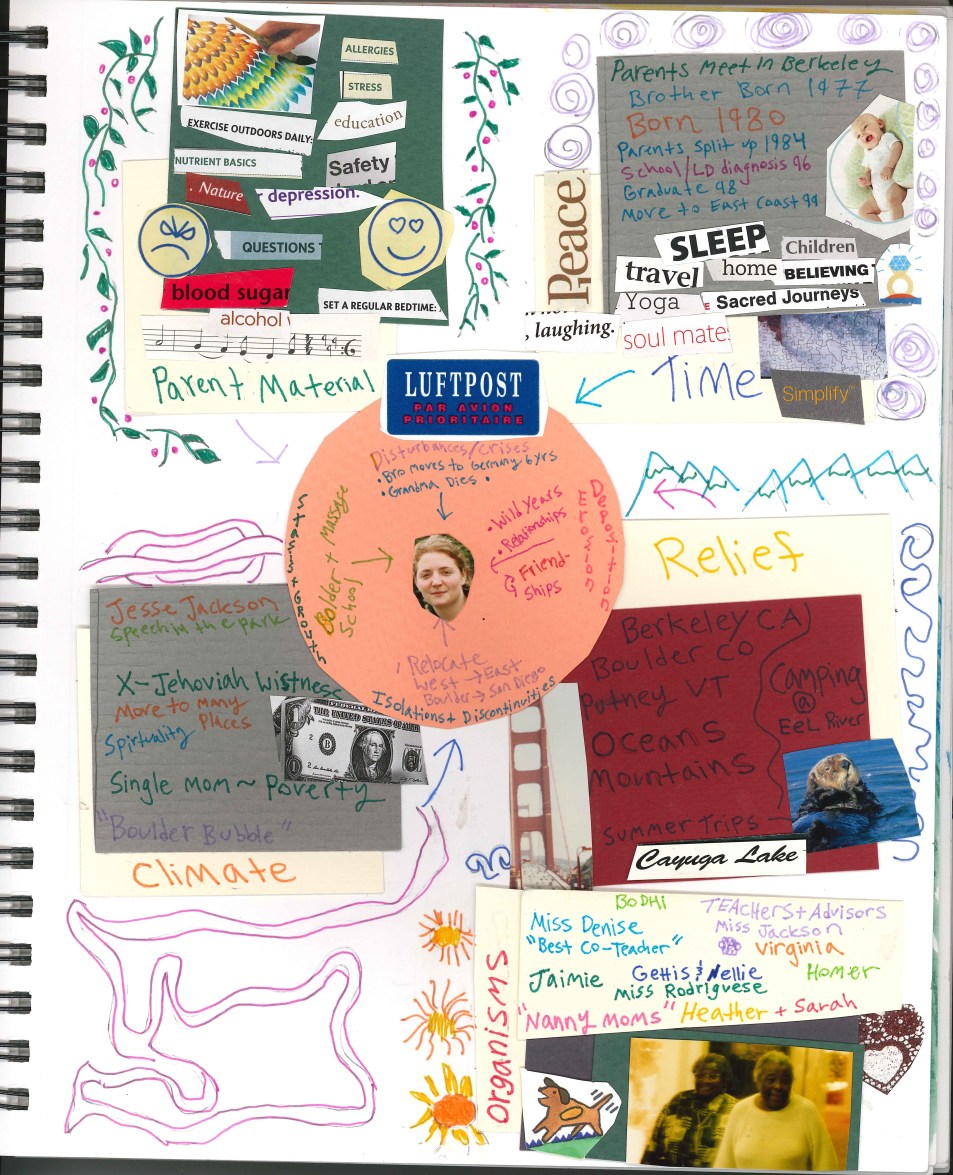 ALLERGIES
STRESS
EXERCISE OUTDOORS DAILY:
education
NUTRIENT BASICS
Safety
Nature
depression.
QUESTIONS
blood sugar
SET A REGULAR BEDTIME:
alcohol
Parent Material
Parents Meet In Berkeley
Brother Born 1977
Born 1980
Parents Split up 1984
School/LD diagnosis 96
Graduate 98
Move to East Coast 99
Peace
SLEEP
Children
travel
home
BELIEVING
Yoga
Sacred Journeys
, laughing.
soul mate
Simplify
Time
LUFTPOST
PAR AVION
PRIORITAIRE
Disturbances/Crises
• Bro moves to Germany 6yrs
• Grandma Dies •
Stasis + Growth
Bolder + Massage
School
• Wild Years
• Relationships
& Friend-
Ships
Deposition
Erosion
Relocate
West → East
Boulder → San Diego
Isolations + Discontinuities
Relief
Berkeley CA
Boulder CO
Putney VT
Oceans
Mountains
Camping
@
Eel River
Summer Trips
Cayuga Lake
Jesse Jackson
Speech in the park
X-Jehoviah Wistness
Move to Many
Places
Spirtuality
Single Mom ~ Poverty
"Boulder Bubble"
THE UNITED STATES OF AM
Climate
organisms
BODHi
Miss Denise
"Best Co-Teacher"
TEACHers + Advisors
Miss Jackson
Virginia
Jaimie
Gettis & Nellie
Homer
Miss Rodriguese
"Nanny Moms"
Heather + Sarah